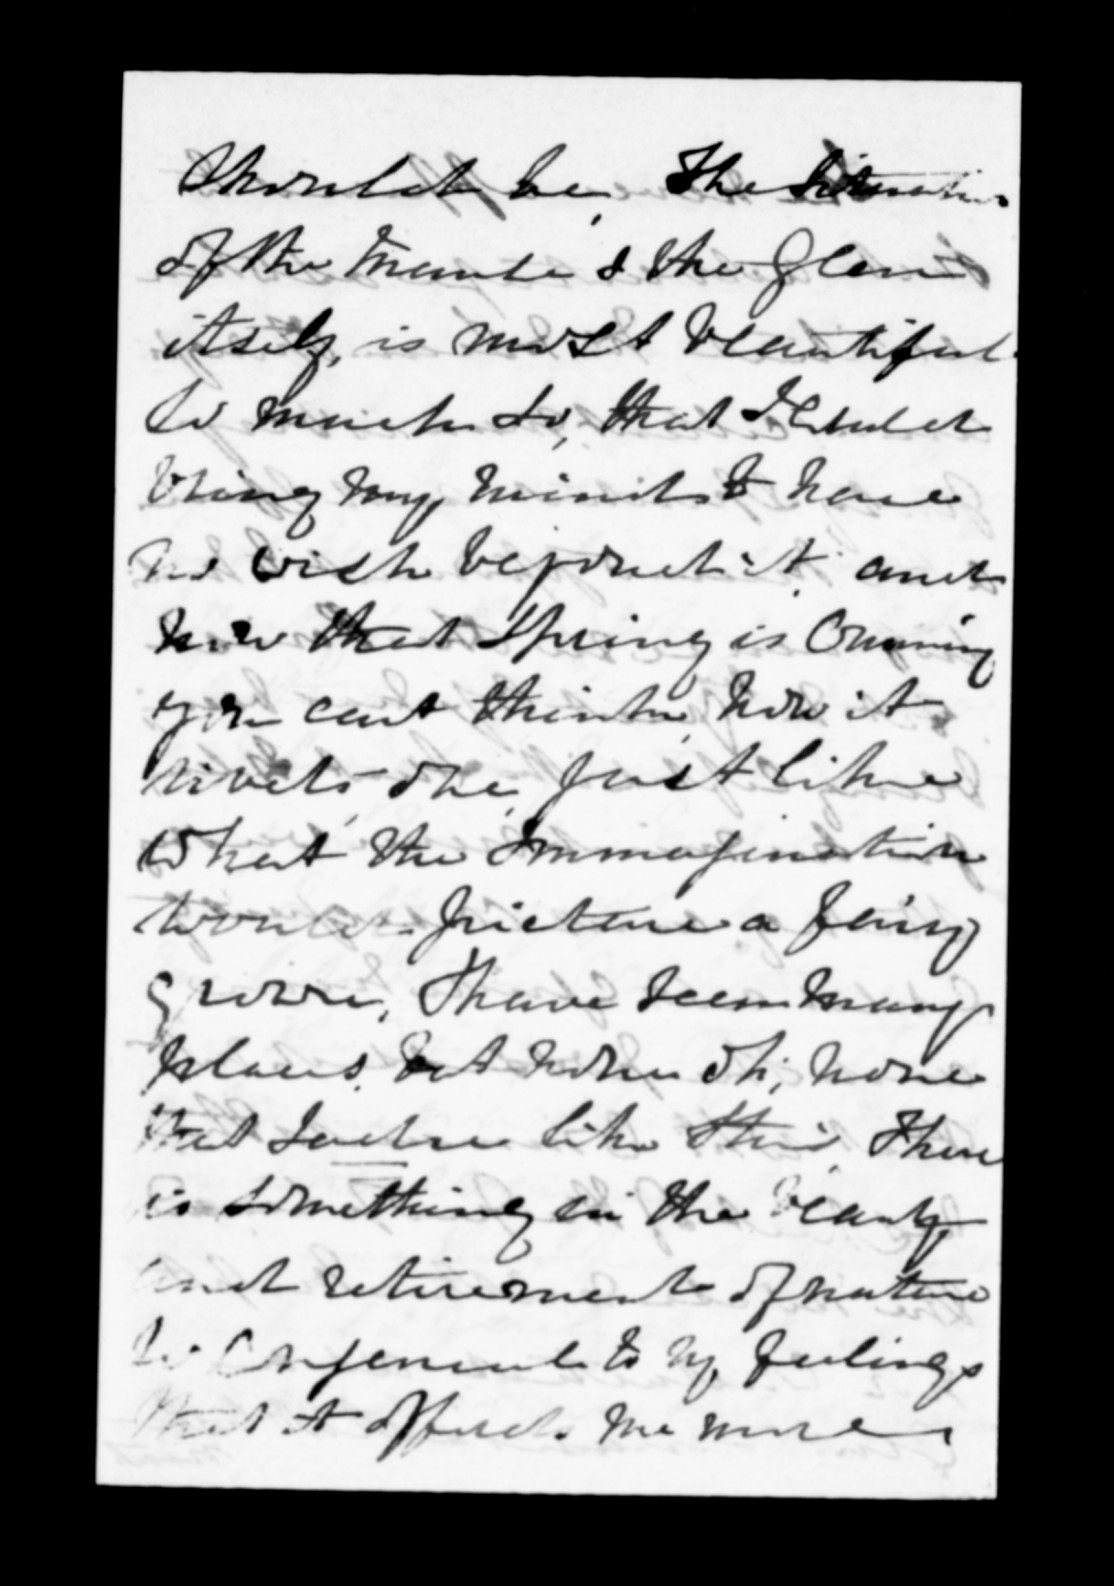 should be, The situation
of the Manse & the Glen
itself, is most beautiful
so much so, that I could
bring my mind to have
no wish beyond it, and
now that Spring is Coming
you cant think, how it
rivets, one, just like
what the Immagination
would picture a fairy
grove, I have seen many
places, but none oh, none
that like this, There
is something in the beauty
and retirement of nature
so Congenial to my feelings
that it affords me more